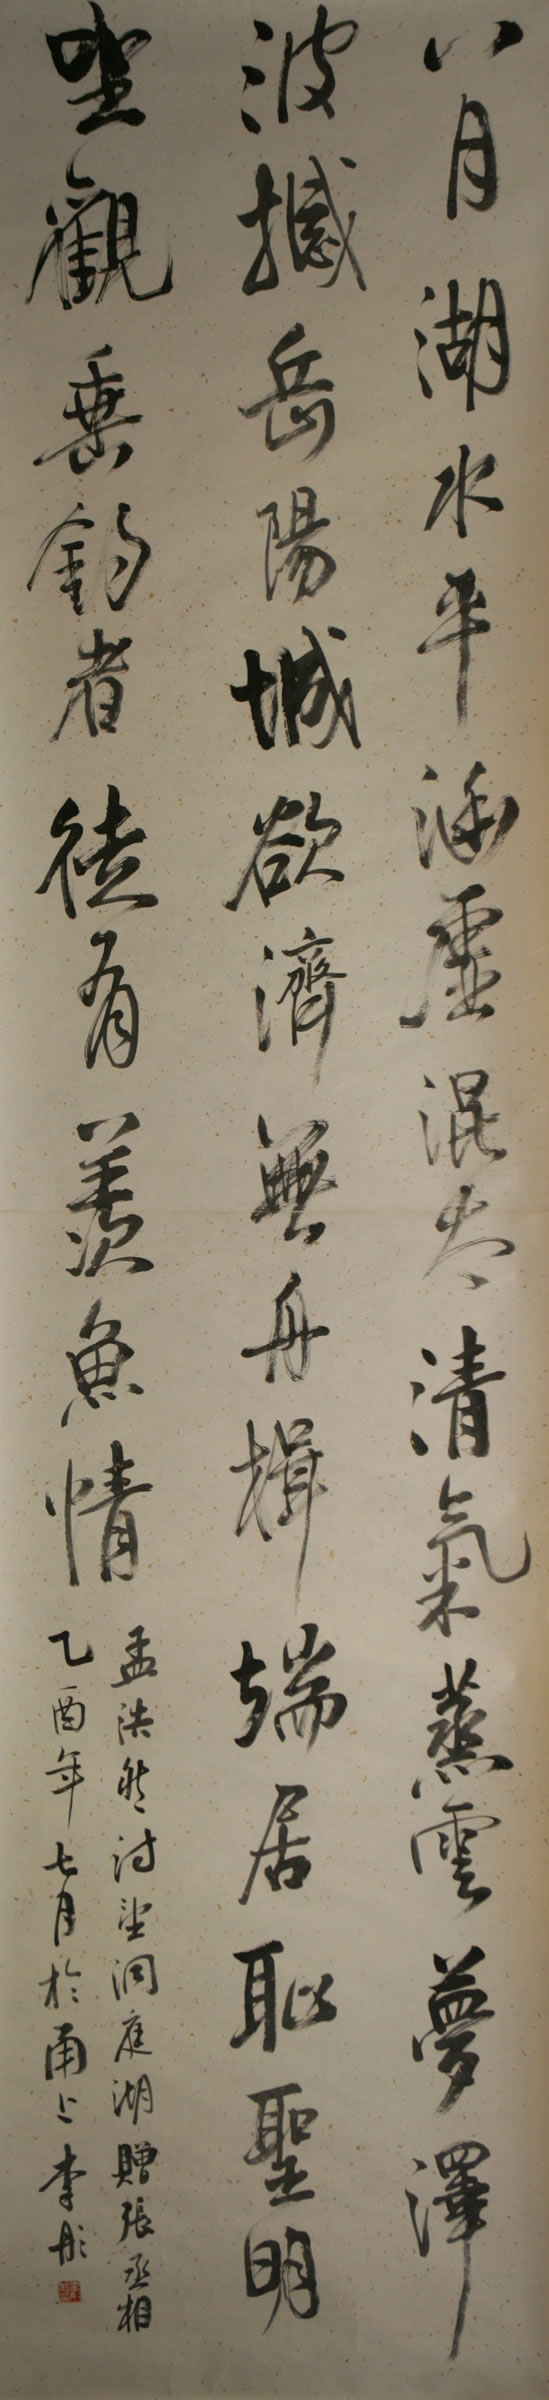 八月湖水平涵虛混太清氣蒸雲夢澤
波撼岳陽城欲濟無舟楫端居恥聖明
坐觀垂釣者徒有羨魚情
孟浩然詩望洞庭湖贈張丞相
乙酉年七月於甬上李彤